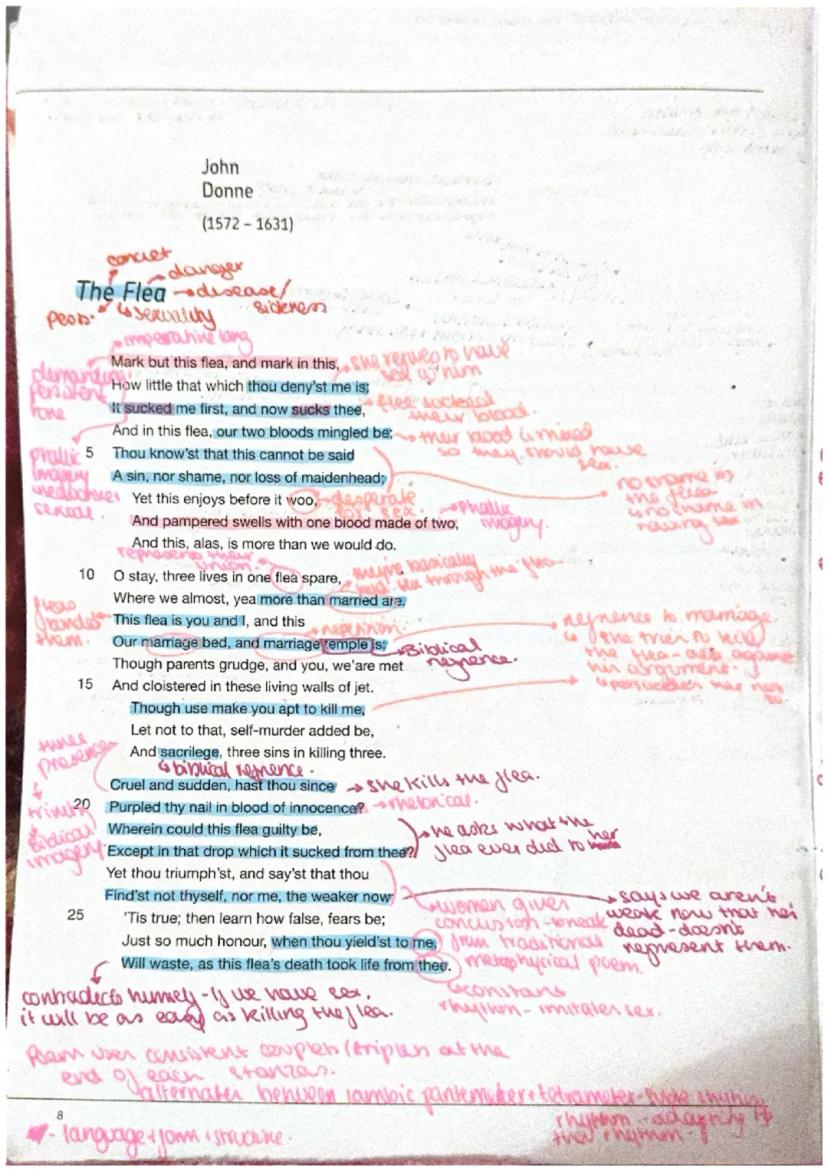 John
Donne
(1572 – 1631)
conceit
danger
The Flea
→disease/
sickness
↳ sexuality
imperative lang
Mark but this flea, and mark in this,
she refuses to have
sex w him
demanding
persistent
tone
How little that which thou deny'st me is;
It sucked me first, and now sucks thee,
flea sucked
their blood.
And in this flea, our two bloods mingled be;
→their blood is mixed
so they should have
sex.
5 Thou know'st that this cannot be said
phallic
imagery
sexual
A sin, nor shame, nor loss of maidenhead;
no shame in
the flea
no shame in
having sex
Yet this enjoys before it woo,
→desperate
for sex.
→phallic
imagery.
And pampered swells with one blood made of two,
And this, alas, is more than we would do.
represents their
union.
10 O stay, three lives in one flea spare,
basically
had sex through the flea
Where we almost, yea more than married are.
fleas
bonded
them.
This flea is you and I, and this
Our marriage bed, and marriage temple is;
→Biblical
refrence.
refrence to marriage.
↳ she tries to kill
the flea - acts against
his argument.
Though parents grudge, and you, we're met
15 And cloistered in these living walls of jet.
Though use make you apt to kill me,
Let not to that, self-murder added be,
three
presence
And sacrilege, three sins in killing three.
↳ biblical refrence.
Cruel and sudden, hast thou since
→ she kills the flea.
trinity
Biblical
imagery
20 Purpled thy nail in blood of innocence?
→rhetorical.
Wherein could this flea guilty be,
Except in that drop which it sucked from thee?
he asks what the
flea ever did to her
Yet thou triumph'st, and say'st that thou
Find'st not thyself, nor me, the weaker now
women gives
conclusion - break
from traditional
metaphysical poem.
→says we aren't
weak now that he's
dead - doesn't
represent them.
25 'Tis true; then learn how false, fears be;
Just so much honour, when thou yield'st to me,
Will waste, as this flea's death took life from thee.
↳constant
rhythm - imitates sex.
contradicts himself - if we have sex,
it will be as easy as killing the flea.
Poem uses consistent couplets (triplets at the
end of each stanzas.
alternates between iambic pentameter + tetrameter
rhythm - adapting
8
- language + form + structure.